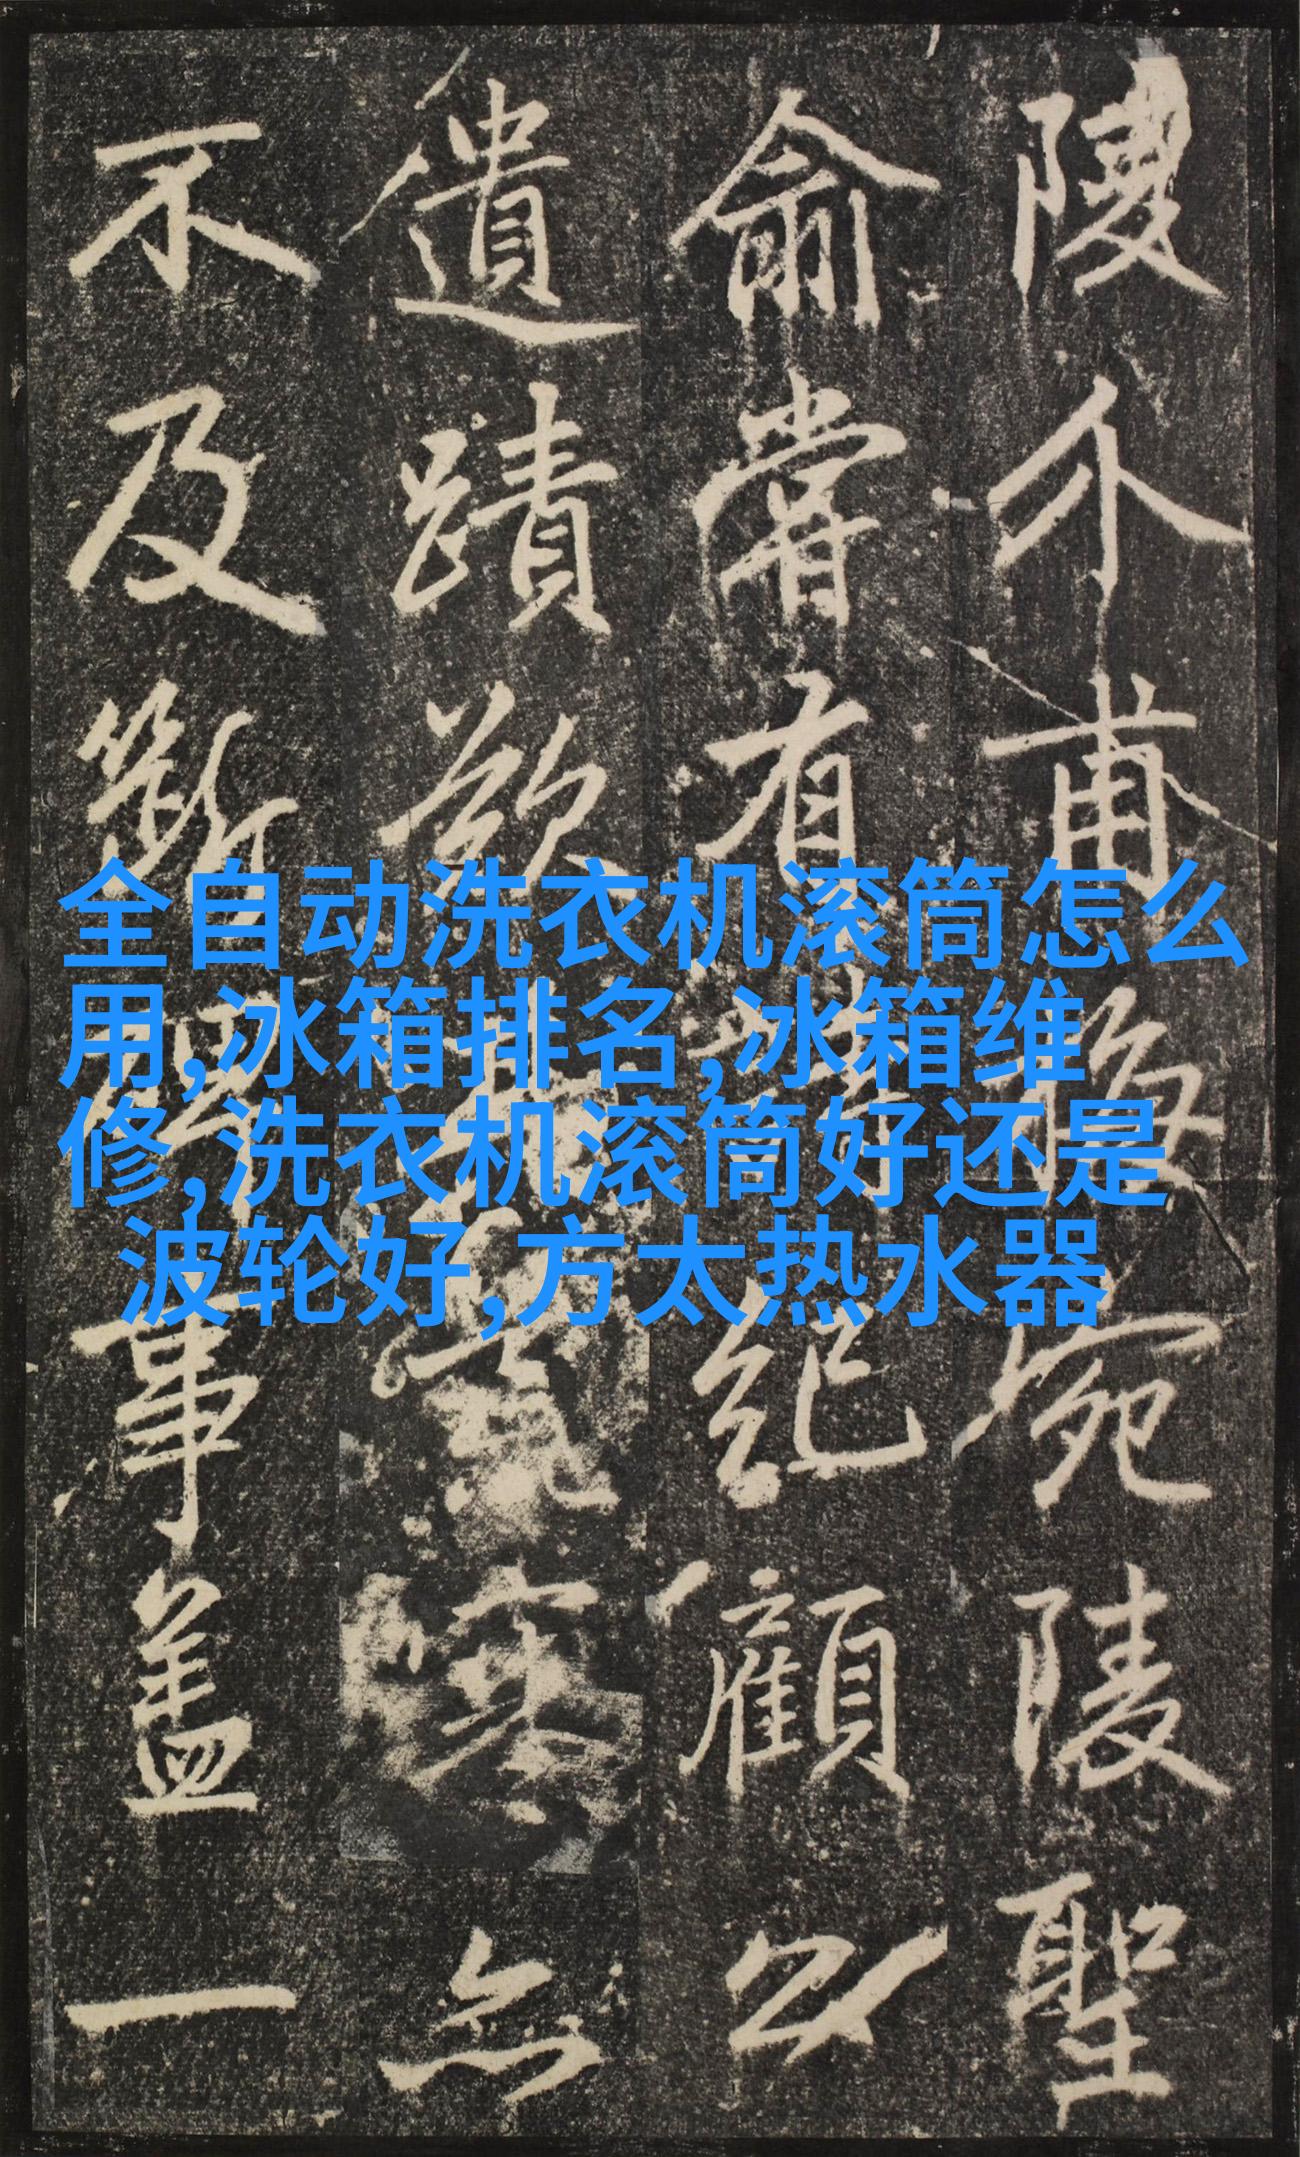 全自动洗衣机滚筒怎么
用,冰箱排名,冰箱维
修,洗衣机滚筒好还是
波轮好,方太热水器
陵介甫梅宛陵聖
俞嘗有紀顧公
遺蹟
不及斷事蓋一